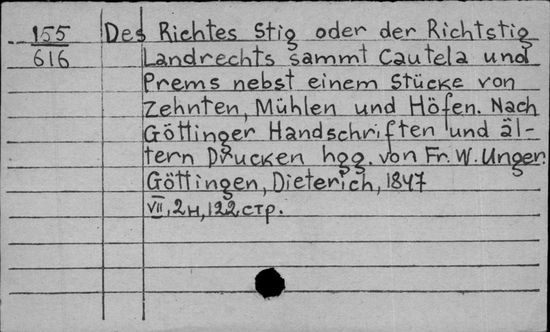 155 Des Richtes Stig oder der Richtstig
616 Landrechts sammt Cautela und
Prems nebst einem Stücke von
Zehnten, Mühlen und Höfen. Nach
Göttinger Handschriften und äl-
tern Drucken hgg. von Fr. W. Unger.
Göttingen, Dieterich, 1847
VII, 2н, 122, стр.